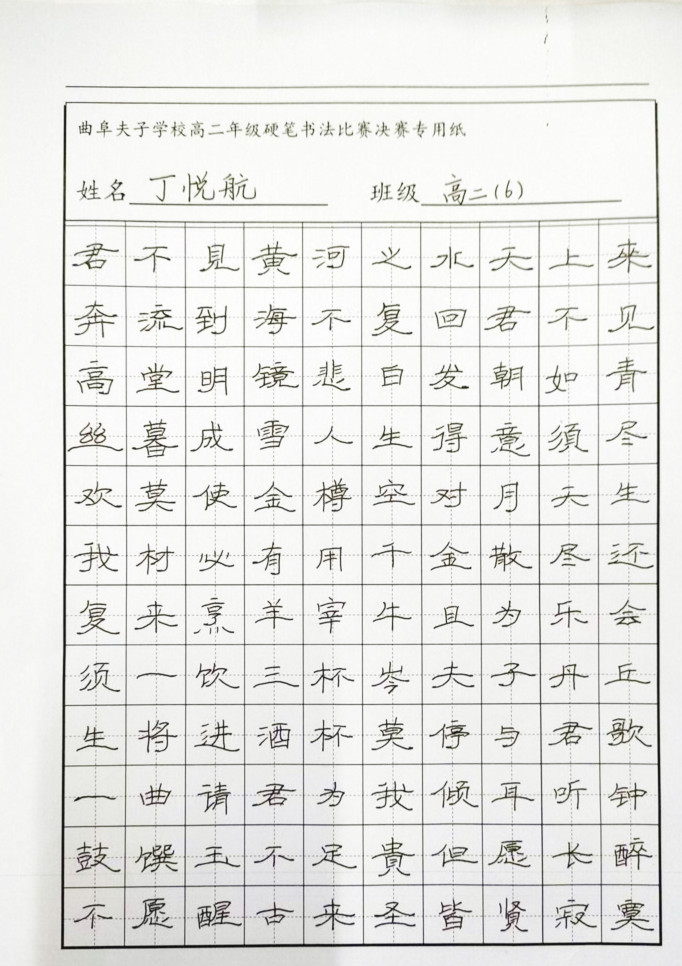 曲阜夫子学校高二年级硬笔书法比赛决赛专用纸
姓名 丁悦航 班级 高二(6)
君不見黄河之水天上來
奔流到海不复回君不见
高堂明镜悲白发朝如青
丝暮成雪人生得意须尽
欢莫使金樽空对月天生
我材必有用千金散尽还
复来烹羊宰牛且为乐会
须一饮三杯岑夫子丹丘
生将进酒杯莫停与君歌
一曲请君为我倾耳听钟
鼓馔玉不足貴但愿长醉
不愿醒古来圣皆贤寂寞